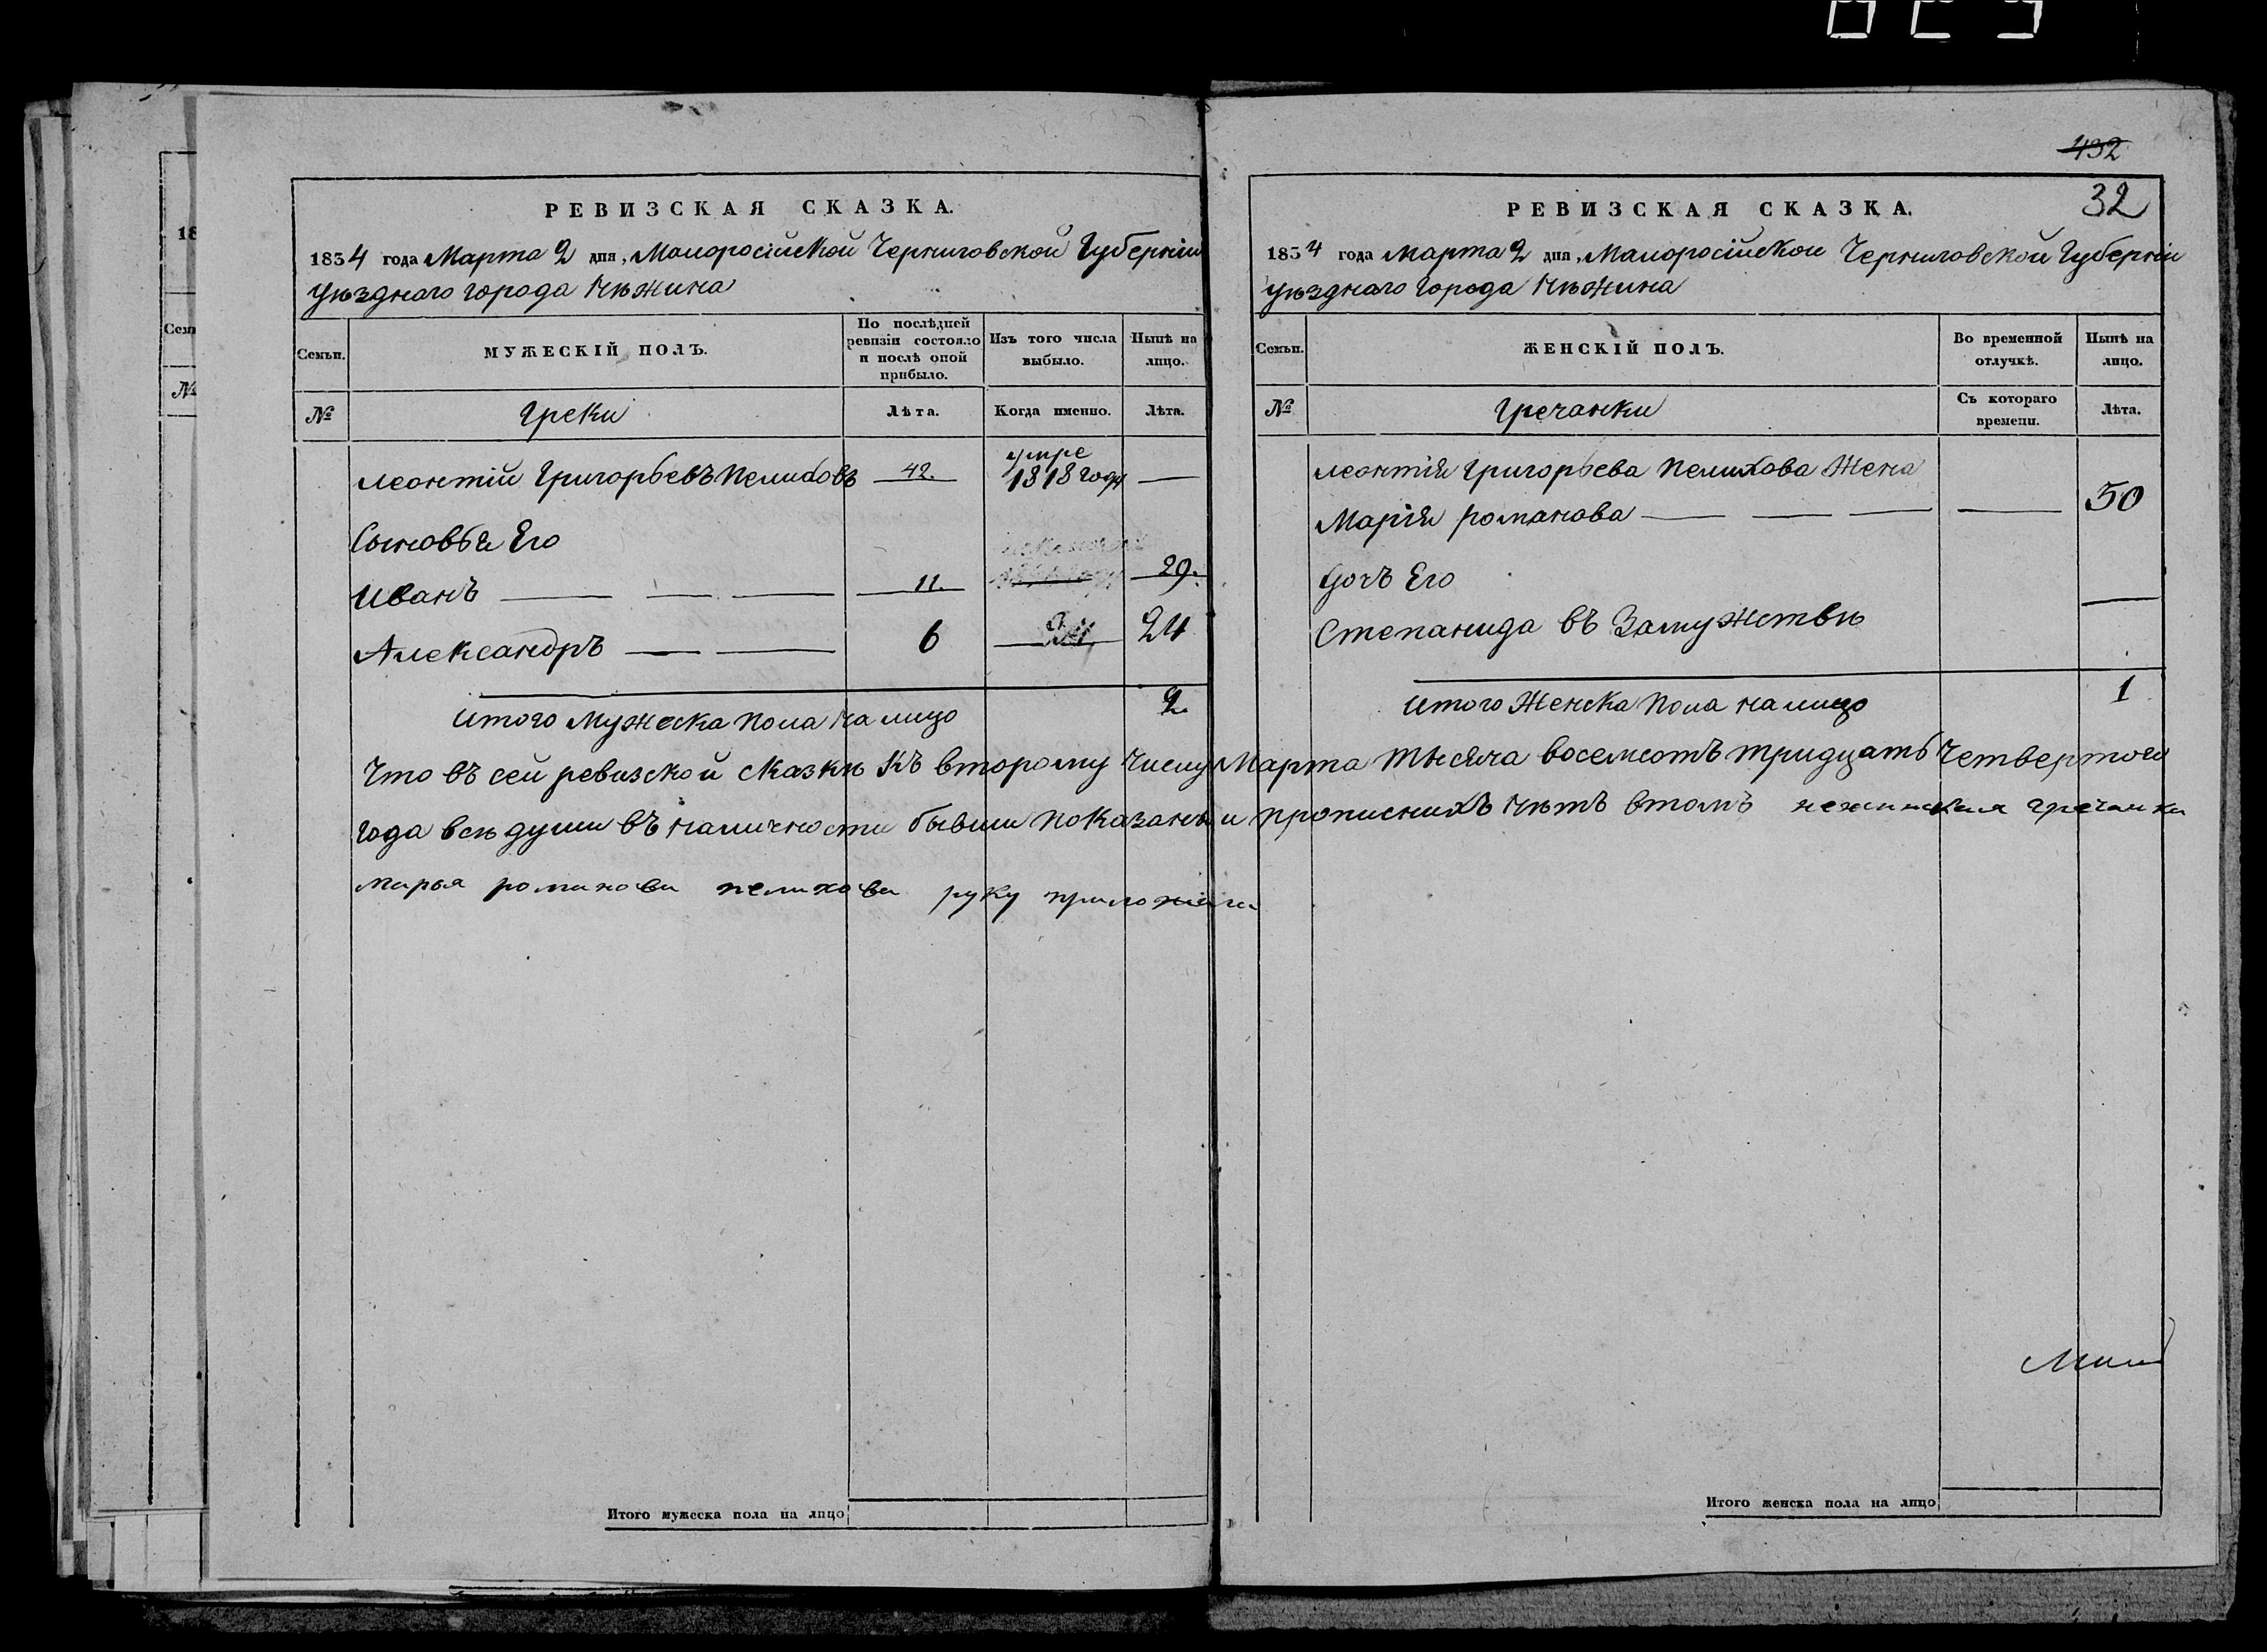 432
32
РЕВИЗСКАЯ СКАЗКА.
1834 года Марта 2 дня, Малоросійской Черниговской Губерніи
уѣзднаго города Нѣжина
Семьи.
МУЖЕСКІЙ ПОЛЪ.
По послѣдней ревизіи состояло и послѣ оной прибыло.
Изъ того числа выбыло.
Нынѣ на лицо.
№
Греки
Лѣта.
Когда именно.
Лѣта.
Леонтій Григорьевъ Пелиховъ — 42. умре 1818 году —
Сыновья Его
Иванъ — — — 11. 29.
Александръ — — 6 24
Итого Мужеска пола на лицо 2
РЕВИЗСКАЯ СКАЗКА.
1834 года Марта 2 дня, Малоросійской Черниговской Губерніи
уѣзднаго города Нѣжина
Семьи.
ЖЕНСКІЙ ПОЛЪ.
Во временной отлучкѣ.
Нынѣ на лицо.
№
Гречанки
Съ котораго времени.
Лѣта.
Леонтія Григорьева Пелихова Жена
Марія романова — — — — 50
Дочъ Его
Степанида въ Замужствѣ —
Итого Женска пола на лицо 1
Что въ сей ревизской сказкѣ къ второму Числу Марта тысяча восемсотъ тридцать Четвертого
года всѣ души въ наличности бывши показаны и прописнихъ нѣтъ втомъ нежинская гречанка
марья романова пелихова руку приложила
Итого мужеска пола на лицо
Итого женска пола на лицо